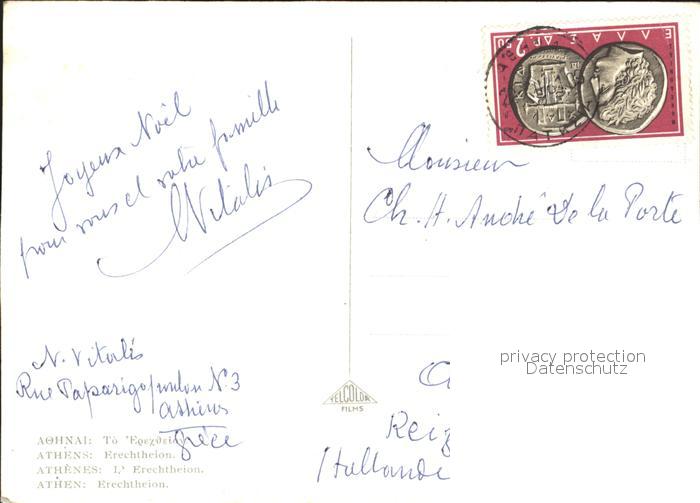 Joyeux Noël
pour vous et votre famille
N Vitalis
N. Vitalis
Rue Paparigopoulou N.3
Athènes
Grèce
ΑΘΗΝΑΙ: Τὸ Ἐρεχθεῖον.
ATHENS: Erechtheion.
ATHÈNES: L' Erechtheion.
ATHEN: Erechtheion.
ΕΛΛΑΣ ΔΡ. 2.50
Monsieur
Ch. H. André De la Porte
privacy protection
Datenschutz
Reiz
Hollande
TELCOLOR
FILMS